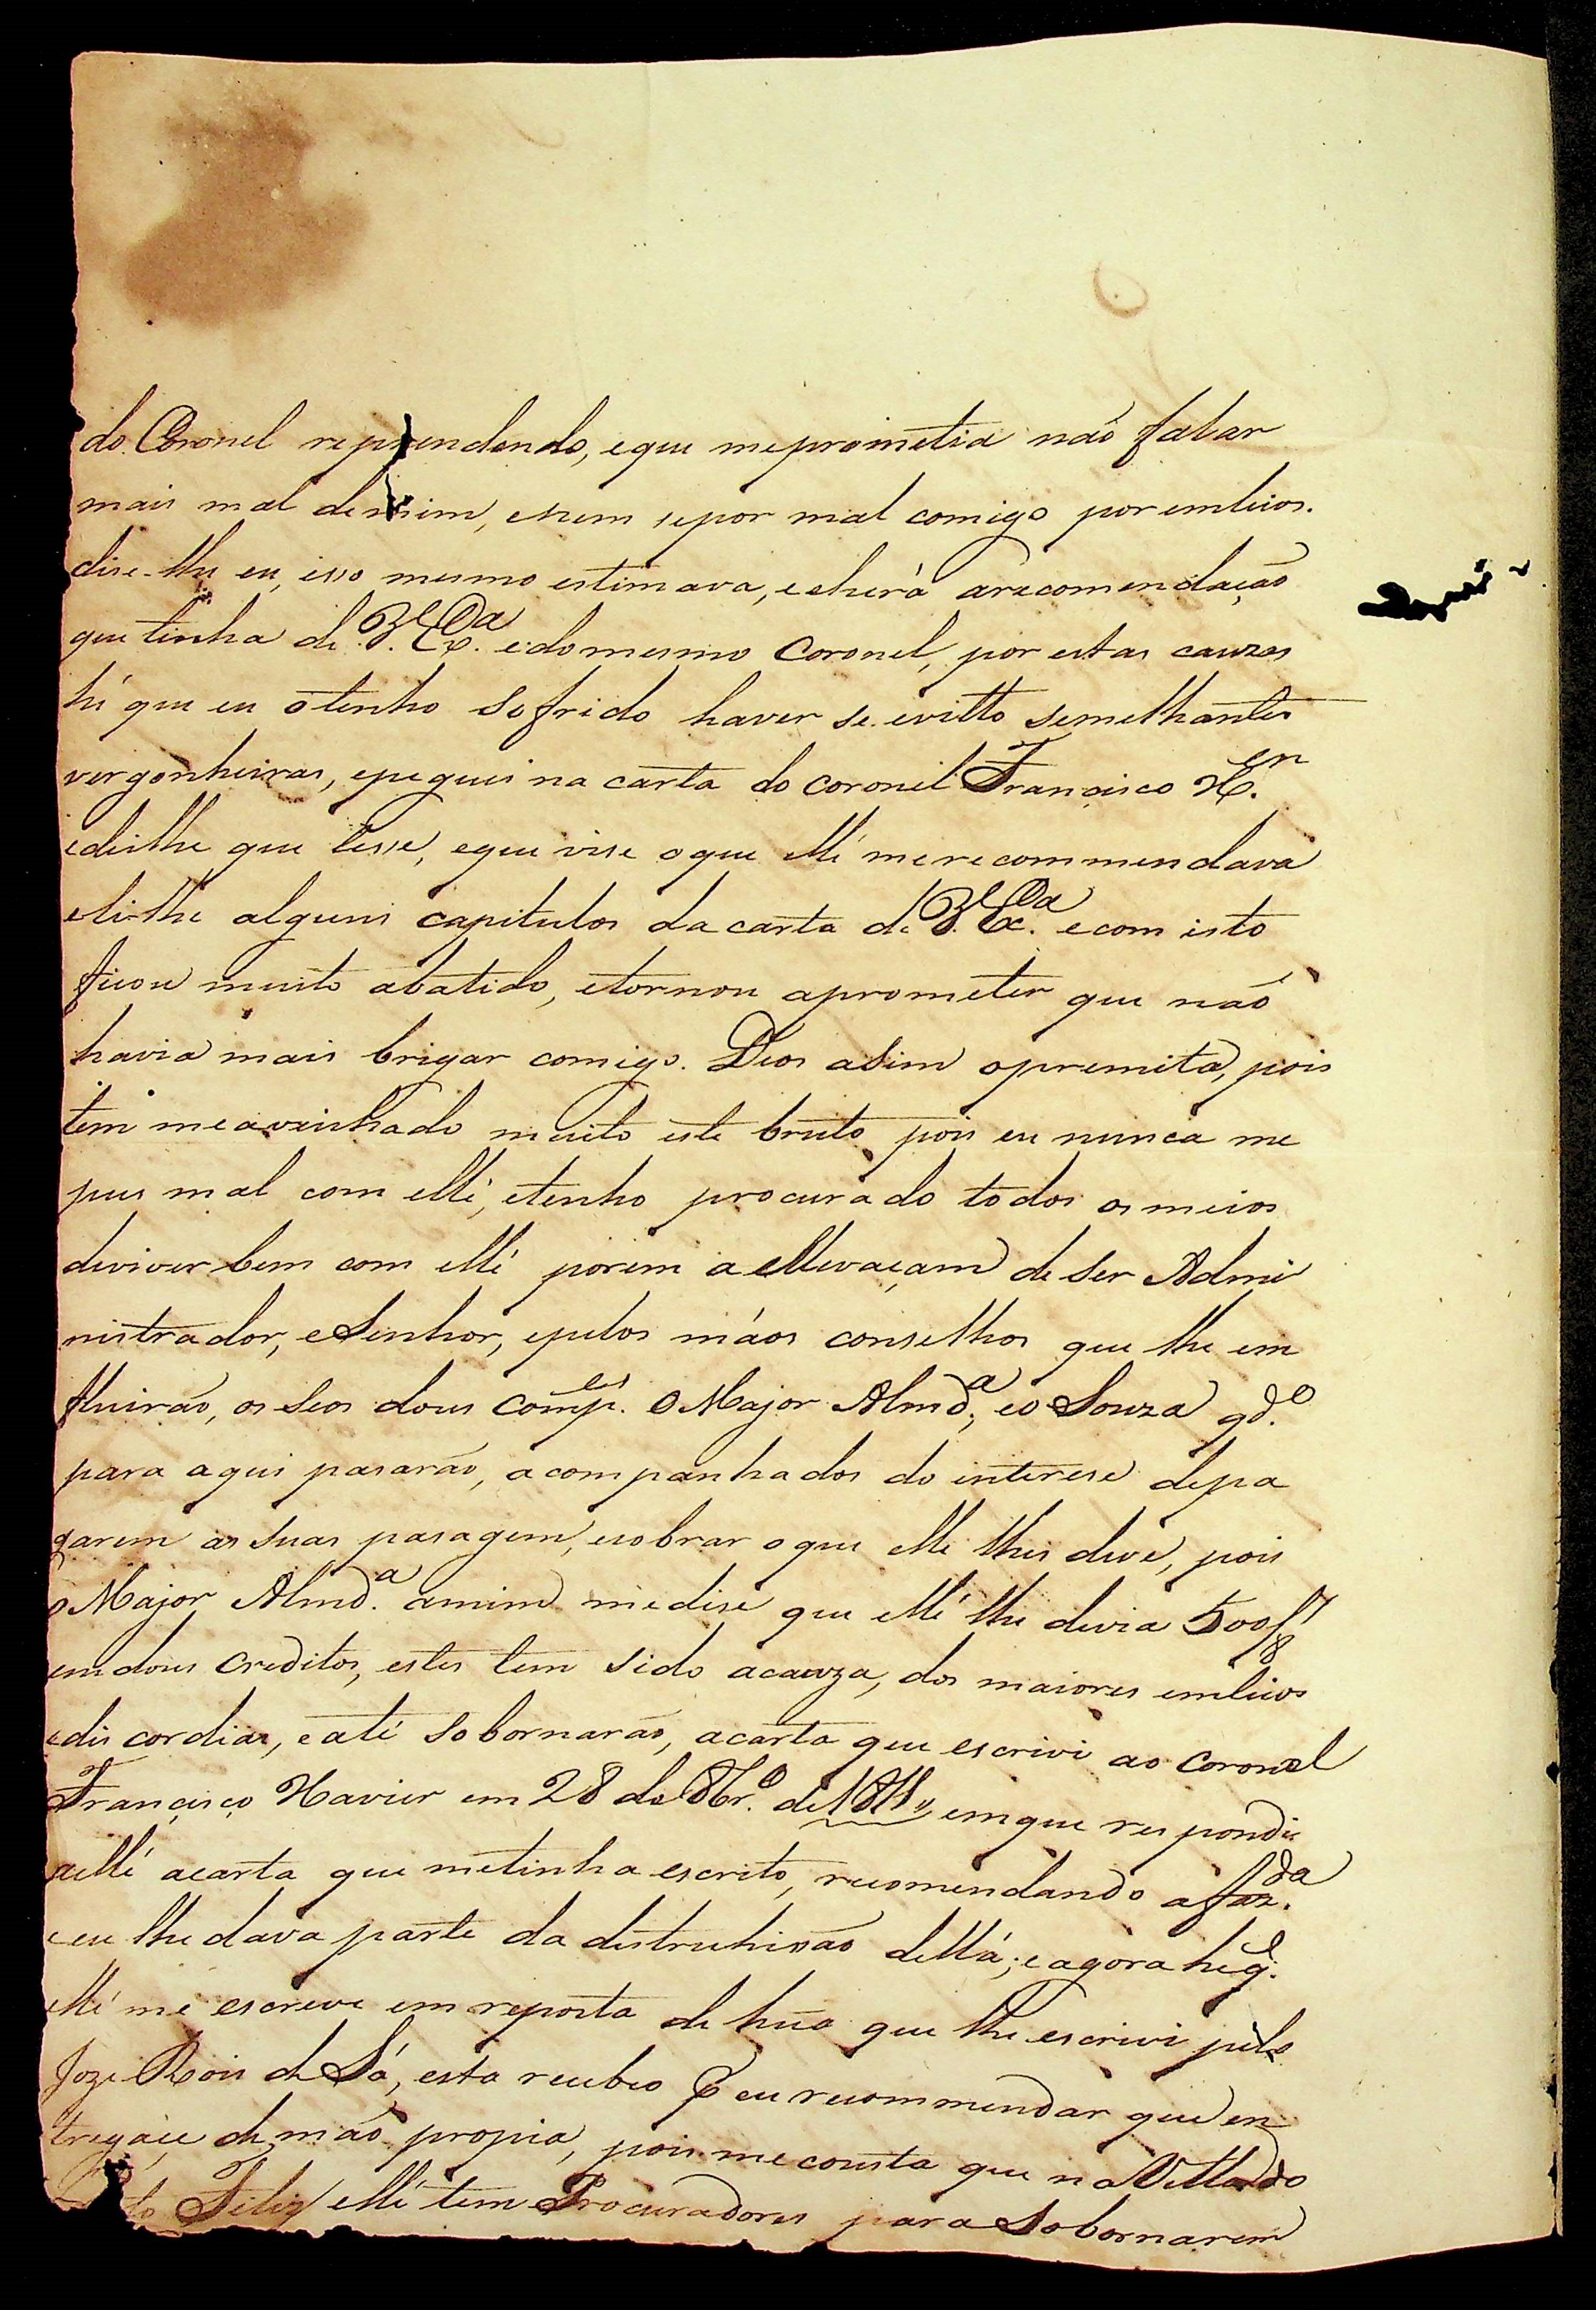 do Coronel reprendendo, eque meprometia não falar
mais mal demim, enem sepor mal comigo por enleios.
dise-lhe eu, isso mesmo estimava, eeherá arecomendação
que tinha de V. Exa. edomesmo Coronel, por estas cauzas
hé que eu otenho sofrido haver se evitto semelhantes
vergonheiras, epeguei na carta do Coronel Francisco Xer.
edeilhe que lesse, eque vise oque ellé merecommendava
elilhe alguns capitulos da carta de V. Exa. ecom isto
ficou muito abatido, etornou aprometer que não
havia mais brigar comigo. Deos asim opremita, pois
tem meavexinhado muito este bruto pois eu nunca me
pus mal com ellé, etenho procurado todos os meios
deviver bem com ellé porem a ellevaçam de ser Admi
nistrador, eSenhor, epelos máos conselhos que lhe em
fluirão, os seos dous Compes. o Major Almda, eo Souza qdo.
para aqui pasarão, acompanhados do interese depa
garem as suas pasagem, ecobrar oque elle lhes deve, pois
o Major Almda. amim medise que ellé lhe devia 500/8
em dous Creditos, estes tem sido acauza, dos maiores enleios
ediscordias, eaté sobornarão, acarta que escrivi ao Coronel
Francisco Xavier em 28 de 8bro. de 1811,, emque respondi
aellé acarta que metinha escrito, recomendando afazda.
eeu lhe dava parte da destruhisão dellá; eagora hé q.
ellé me escreve em reposta de hũa que lhe escrivi pelo
Joze Rois de Sá, esta recebeo p eu recommendar que en
tregáce de mão propia, pois me consta que na Villa do
to Feliz ellé tem Procuradores para sobornarem